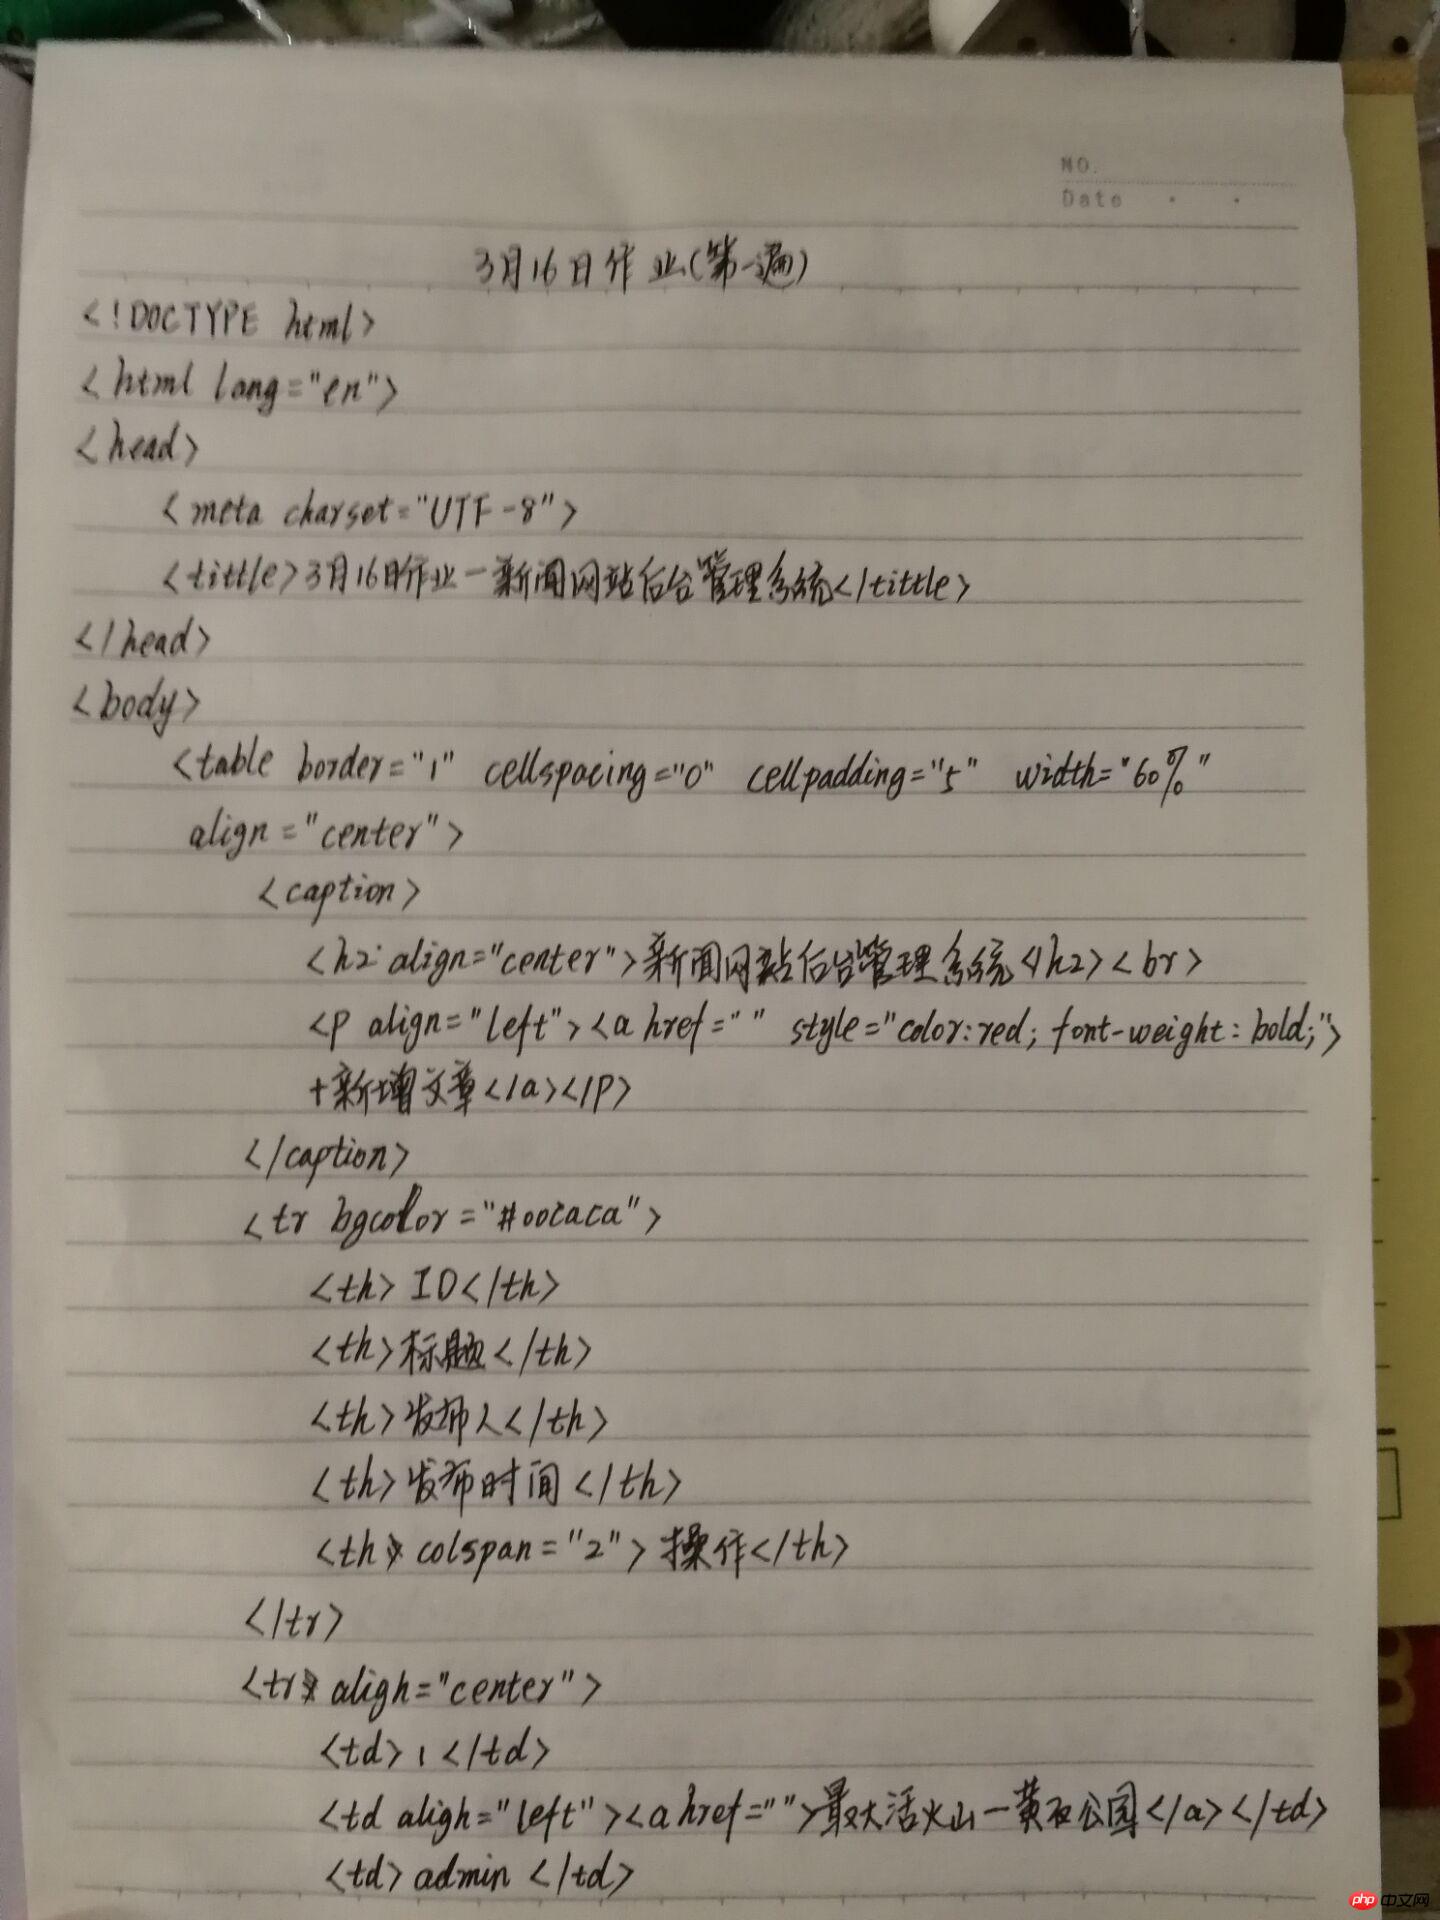 NO.
Date
3月16日作业(第一遍)
<!DOCTYPE html>
<html lang="en">
<head>
<meta charset="UTF-8">
<tittle>3月16日作业—新闻网站后台管理系统</tittle>
</head>
<body>
<table border="1" cellspacing="0" cellpadding="5" width="60%"
align="center">
<caption>
<h2 align="center">新闻网站后台管理系统</h2><br>
<p align="left"><a href="" style="color:red; font-weight:bold;">
+新增文章</a></p>
</caption>
<tr bgcolor="#00caca">
<th>ID</th>
<th>标题</th>
<th>发布人</th>
<th>发布时间</th>
<th colspan="2">操作</th>
</tr>
<tr aligh="center">
<td>1</td>
<td aligh="left"><a href="">最大活火山—黄石公园</a></td>
<td>admin</td>
php中文网